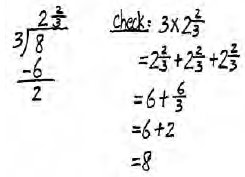 2 2/3
3)8
-6
2
check: 3 × 2 2/3
= 2 2/3 + 2 2/3 + 2 2/3
= 6 + 6/3
= 6 + 2
= 8